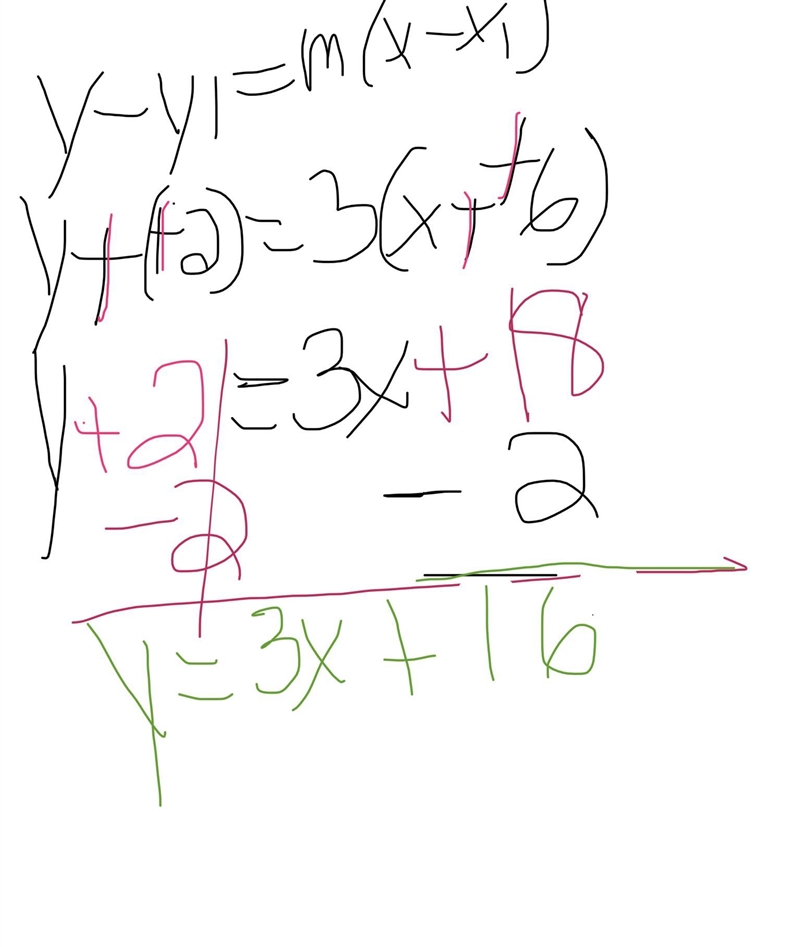 y-y1=m(x-x1)
y+(+2)=3(x++6)
y+2=3x+18
-2 -2
y=3x+16